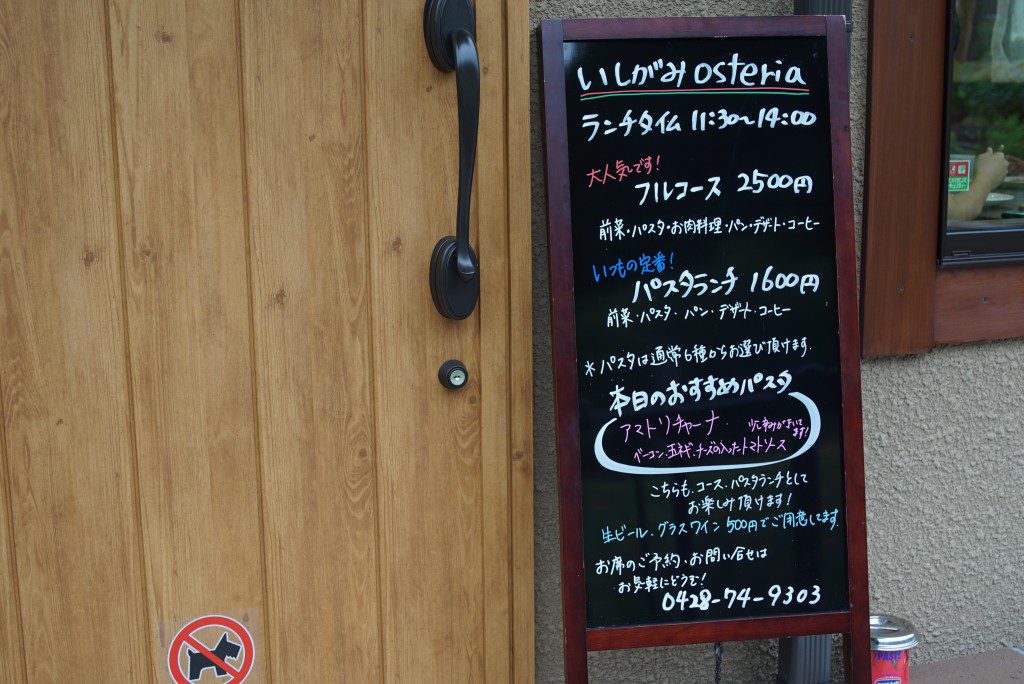 いしがみosteria
ランチタイム 11:30〜14:00
大人気です!
フルコース 2500円
前菜・パスタ・お肉料理・パン・デザート・コーヒー
いつもの定番!
パスタランチ 1600円
前菜・パスタ・パン・デザート・コーヒー
*パスタは通常6種からお選び頂けます
本日のおすすめパスタ
アマトリチャーナ
少し辛みがきいてます!
ベーコン、玉ネギ、チーズの入ったトマトソース
こちらも、コース、パスタランチとして
お楽しみ頂けます!
生ビール、グラスワイン 500円でご用意してます
お席のご予約、お問い合せは
お気軽にどうぞ!
0428-74-9303